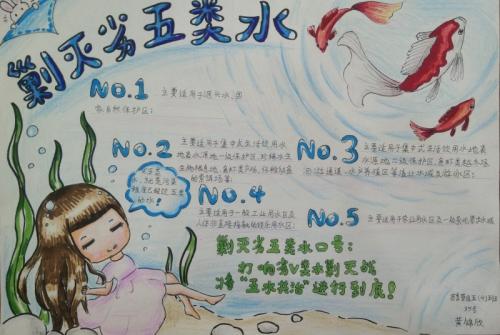 剿灭劣五类水
NO.1 主要适用于源头水、国
家自然保护区;
NO.2 主要适用于集中式生活饮用水
地表水源地一级保护区、珍稀水生
生物栖息地、鱼虾类产场、仔稚幼鱼
的索饵场等;
NO.3 主要适用于集中式生活饮用水地表
水源地二级保护区、鱼虾类越冬场
洄游通道、水产养殖区等渔业水域及游泳区;
NO.4
主要适用于一般工业用水区及
人体非直接接触的娱乐用水区;
NO.5 主要适用于农业用水区及一般景观要求水域
水,就是污染
程度已超过五类
的水!
剿灭劣五类水口号:
打响劣V类水剿灭战
将“五水共治”进行到底!
黄锦欣